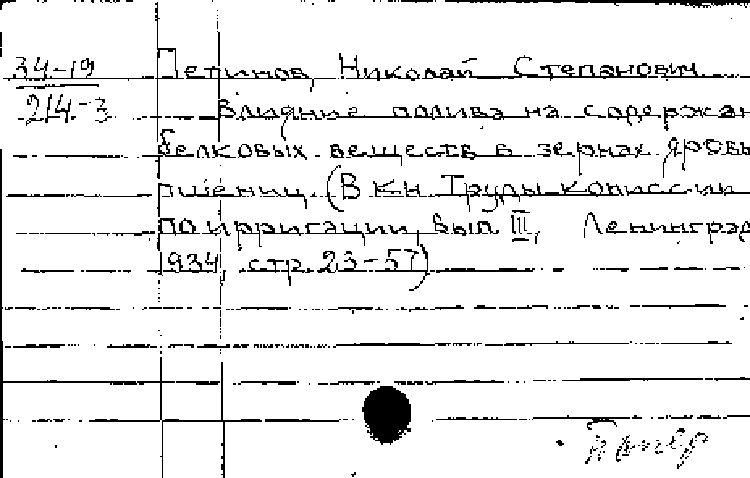 34-19
214-3
Петинов, Николай Степанович
Влияние полива на содержан
белковых веществ в зернах яровы
пшениц. (В кн. Труды комиссии
по ирригации, вып. III, Ленинград
1934, стр. 23-57)